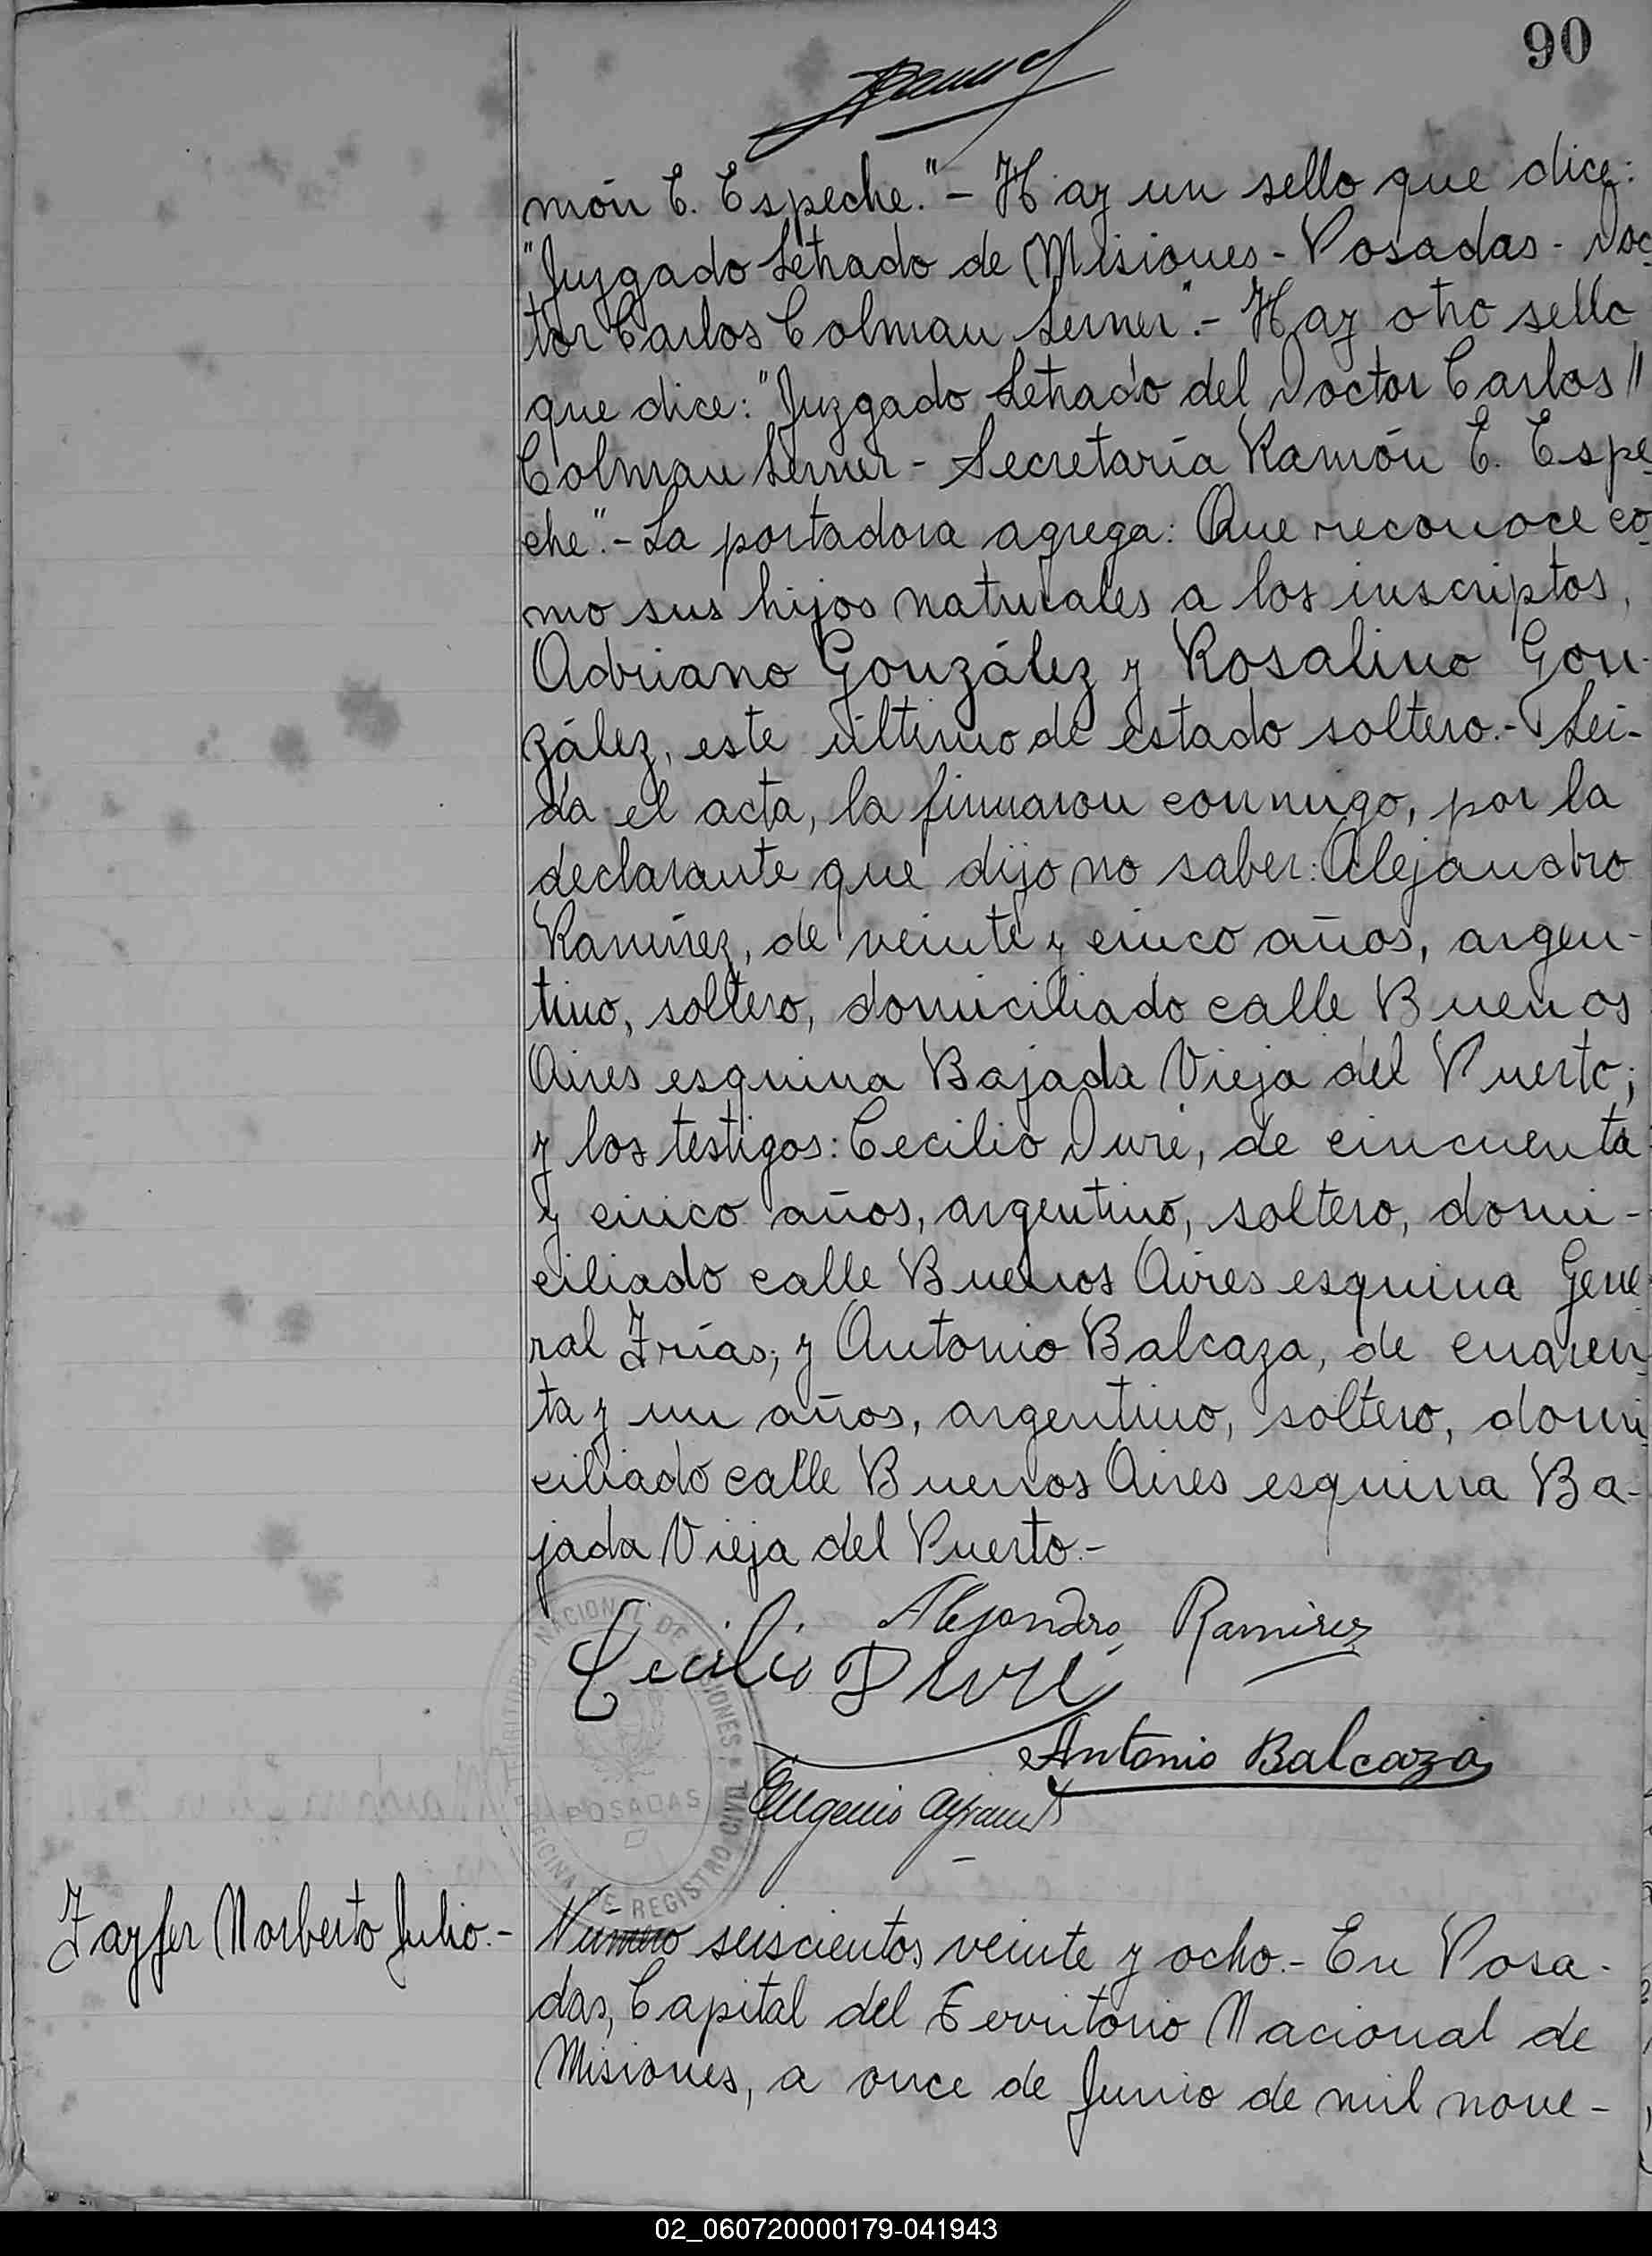 90
món E. Espeche."- Hay un sello que dice:
"Juzgado Letrado de Misiones - Posadas - Doc-
tor Carlos Colman Lerner".- Hay otro sello
que dice: "Juzgado Letrado del Doctor Carlos //
Colman Lerner - Secretaría Ramón E. Espe-
che".- La portadora agrega: Que reconoce co-
mo sus hijos naturales a los inscriptos,
Adriano González y Rosalino Gon-
zález, este último de estado soltero.- Leí-
da el acta, la firmaron conmigo, por la
declarante que dijo no saber: Alejandro
Ramírez, de veinte y cinco años, argen-
tino, soltero, domiciliado calle Buenos
Aires esquina Bajada Vieja del Puerto;
y los testigos: Cecilio Duré, de cincuenta
y cinco años, argentino, soltero, domi-
ciliado calle Buenos Aires esquina Gene-
ral Frías; y Antonio Balcaza, de cuaren-
ta y un años, argentino, soltero, domi-
ciliado calle Buenos Aires esquina Ba-
jada Vieja del Puerto.-
Alejandro Ramirez
Cecilio Duré
Antonio Balcaza
Eugenio
TERRITORIO NACIONAL DE MISIONES
POSADAS
OFICINA DE REGISTRO CIVIL
Fayfer Norberto Julio.-
Número seiscientos veinte y ocho.- En Posa-
das, Capital del Territorio Nacional de
Misiones, a once de Junio de mil nove-
02_060720000179-041943